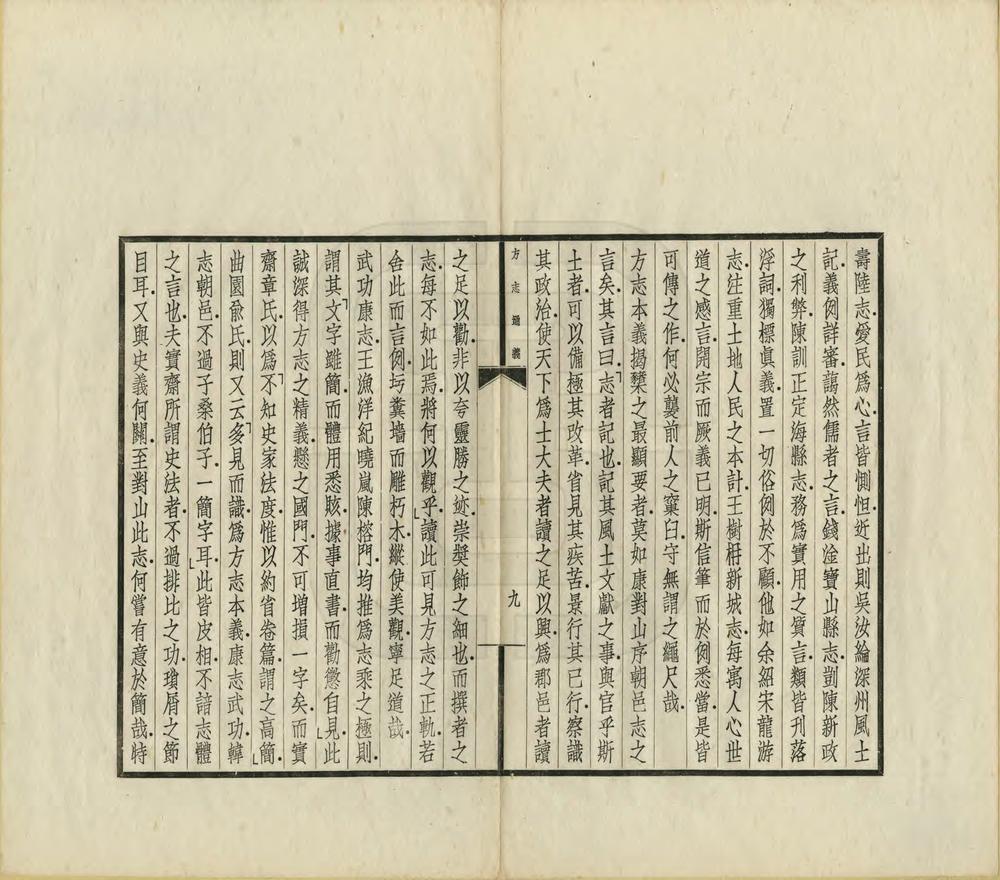 壽陸志．愛民爲心．言皆惻怛．近出則吳汝綸深州風土
記．義例詳審．藹然儒者之言．錢淦寶山縣志．剴陳新政
之利弊．陳訓正定海縣志．務爲實用之質言．類皆刋落
浮詞．獨標眞義．置一切俗例於不顧．他如余紹宋龍游
志．注重土地人民之本計．王樹枏新城志．每寓人心世
道之感言．開宗而厥義已明．斯信筆而於例悉當．是皆
可傳之作．何必襲前人之窠臼．守無謂之繩尺哉．
方志本義揭櫫之最顯要者．莫如康對山序朝邑志之
言矣．其言曰．「志者記也．記其風土文獻之事．與官乎斯
土者．可以備極其改革．省見其疾苦．景行其已行．察識
其政治．使天下爲士大夫者讀之足以興．爲郡邑者讀
方志通義
九
之足以勸．非以夸靈勝之迹．崇奬飾之細也．而撰者之
志．每不如此焉．將何以觀乎．」讀此可見方志之正軌．若
舍此而言例．圬糞墻而雕朽木．縱使美觀．寧足道哉．
武功康志．王漁洋紀曉嵐陳榕門．均推爲志乘之極則．
謂其「文字雖簡．而體用悉賅．據事直書．而勸懲自見．」此
誠深得方志之精義．懸之國門．不可增損一字矣．而實
齋章氏．以爲「不知史家法度．惟以約省卷篇．謂之高簡．」
曲園兪氏．則又云「多見而識．爲方志本義．康志武功．韓
志朝邑．不過子桑伯子．一簡字耳．」此皆皮相．不諳志體
之言也．夫實齋所謂史法者．不過排比之功．瑣屑之節
目耳．又與史義何關．至對山此志．何嘗有意於簡哉．特